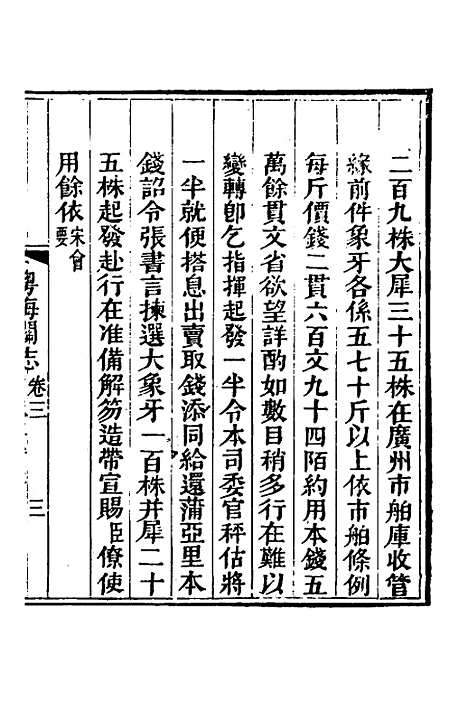 二百九株大犀三十五株在廣州市舶庫收管
緣前件象牙各係五七十斤以上依市舶條例
每斤價錢二貫六百文九十四陌約用本錢五
萬餘貫文省欲望詳酌如數目稍多行在難以
變轉卽乞指揮起發一半令本司委官秤估將
一半就便搭息出賣取錢添同給還蒲亞里本
錢詔令張書言揀選大象牙一百株并犀二十
五株起發赴行在准備解笏造帶宣賜臣僚使
用餘依宋會要
粤海關志 卷三 三